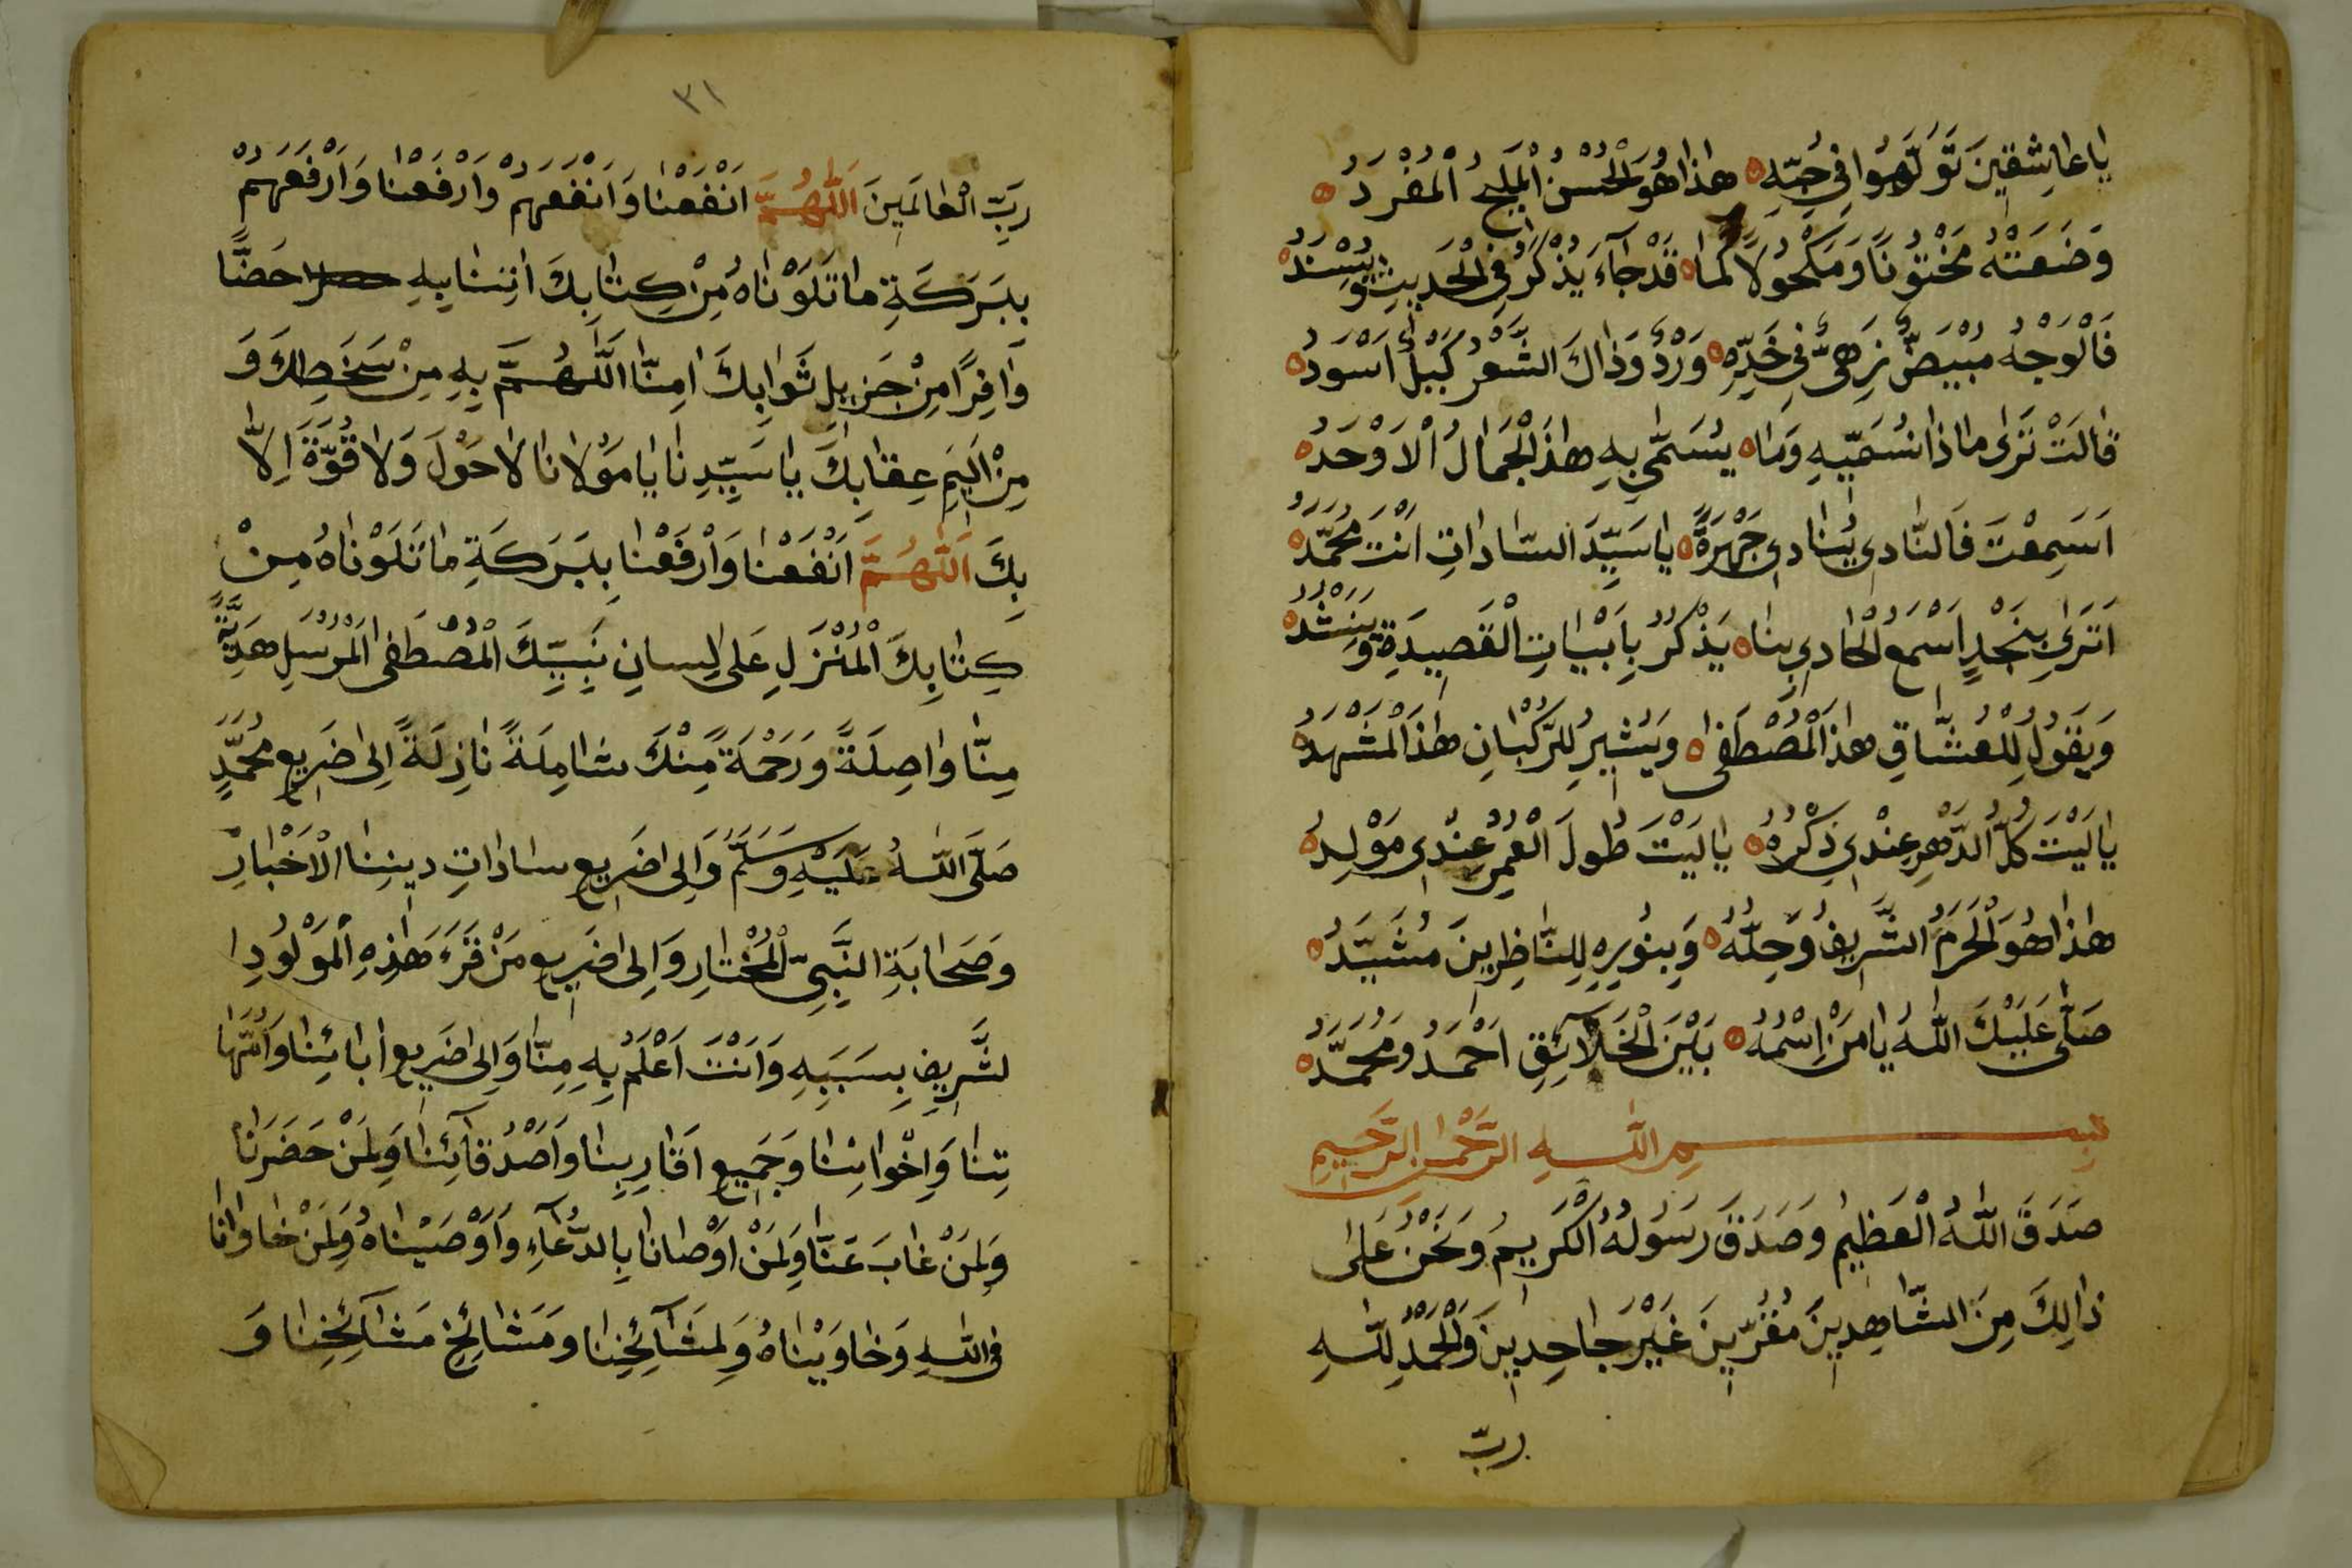 يٰا عٰاشِقِينَ تَوَلَّهُوا فِي حُبِّهِ ه هٰذٰا هُوَ الْحُسْنُ الْمَلِيحُ الْمُفْرَدُ ه
وَضَعَتْهُ مَخْتُونًا وَمَكْحُولًا كَمٰا ه قَدْ جٰآءَ يُذْكَرُ فِي الْحَدِيثِ وَيُسْنَدُ ه
فَالْوَجْهُ مُبْيَضٌّ زِهِيٌّ فِي خَدِّهِ ه وَرْدٌ وَذٰاكَ الشَّعْرُ كَبَيْلٌ أَسْوَدُ ه
قٰالَتْ تَرٰى مٰاذٰا نُسَمِّيهِ وَمٰا ه يُسَمّٰى بِهِ هٰذَا الْجَمٰالُ الْاَوْحَدُ ه
اَسَمِعْتَ فَالنّٰادِي يُنٰادِي جَهْرَةً ه يٰا سَيِّدَ السّٰادٰاتِ اَنْتَ مُحَمَّدُ ه
اَتَرٰى بِنَجْدٍ اَسْمَعُ الْحٰادِي بِنٰا ه يَذْكُرُ بِاَبْيٰاتِ الْقَصِيدَةِ وَيَنْشُدُ ه
وَيَقُولُ لِلْعُشّٰاقِ هٰذَا الْمُصْطَفٰى ه وَيُشِيرُ لِلرُّكْبٰانِ هٰذَا الْمَشْهَدُ ه
يٰا لَيْتَ كُلَّ الدَّهْرِ عِنْدِي ذِكْرُهُ ه يٰا لَيْتَ طُولَ الْعُمْرِ عِنْدِي مَوْلِدُ ه
هٰذٰا هُوَ الْحَرَمُ الشَّرِيفُ وَحِلُّهُ ه وَبِنُورِهِ لِلنّٰاظِرِينَ مُشَيَّدُ ه
صَلّٰى عَلَيْكَ اللّٰهُ يٰا مَنْ اِسْمُهُ ه بَيْنَ الْخَلَآئِقِ اَحْمَدُ وَمُحَمَّدُ ه
بِسْمِ اللّٰهِ الرَّحْمٰنِ الرَّحِيمِ
صَدَقَ اللّٰهُ الْعَظِيمُ وَصَدَقَ رَسُولُهُ الْكَرِيمُ وَنَحْنُ عَلٰى
ذٰلِكَ مِنَ الشّٰاهِدِينَ مُقِرِّينَ غَيْرَ جٰاحِدِينَ وَالْحَمْدُ لِلّٰهِ
رَبِّ
٣١
رَبِّ الْعٰالَمِينَ اَللّٰهُمَّ انْفَعْنٰا وَانْفَعَهُمْ وَارْفَعْنٰا وَارْفَعَهُمْ
بِبَرَكَةِ مٰا تَلَوْنٰاهُ مِنْ كِتٰابِكَ اٰتِنٰا بِهِ حَضًّا
وَافِرًا مِنْ جَزِيلِ ثَوٰابِكَ اٰمِنّٰا اَللّٰهُمَّ بِهِ مِنْ سَخَطِكَ وَ
مِنْ اَلِيمِ عِقٰابِكَ يٰا سَيِّدِنٰا يٰا مَوْلٰانٰا لٰا حَوْلَ وَلٰا قُوَّةَ اِلّٰا
بِكَ اَللّٰهُمَّ انْفَعْنٰا وَارْفَعْنٰا بِبَرَكَةِ مٰا تَلَوْنٰاهُ مِنْ
كِتٰابِكَ الْمُنْزَلِ عَلٰى لِسٰانِ نَبِيِّكَ الْمُصْطَفَى الْمُرْسَلِ هَدِيَّةً
مِنّٰا وٰاصِلَةً وَرَحْمَةً مِنْكَ شٰامِلَةً نٰازِلَةً اِلٰى ضَرِيعِ مُحَمَّدٍ
صَلَّى اللّٰهُ عَلَيْهِ وَسَلَّمَ وَاِلٰى ضَرِيعِ سٰادٰاتِ دِينِنٰا الْاَخْبٰارِ
وَصَحٰابَةِ النَّبِيِّ الْمُخْتٰارِ وَاِلٰى ضَرِيعِ مَنْ قَرَءَ هٰذِهِ الْمَوْلُودِ ا
لشَّرِيفِ بِسَبَبِهِ وَاَنْتَ اَعْلَمُ بِهِ مِنّٰا وَاِلٰى ضَرِيعِ اٰبٰائِنٰا وَاُمَّهٰا
تِنٰا وَاِخْوٰانِنٰا وَجَمِيعِ اَقٰارِبِنٰا وَاَصْدُقٰآئِنٰا وَلِمَنْ حَضَرَنٰا
وَلِمَنْ غٰابَ عَنّٰا وَلِمَنْ اَوْصٰانٰا بِالدُّعٰآءِ وَاَوْصَيْنٰاهُ وَلِمَنْ خٰاوٰانٰا
فِي اللّٰهِ وَخٰاوَيْنٰاهُ وَلِمَشَآئِخِنٰا وَمَشٰائِخِ مَشَآئِخِنٰا وَ